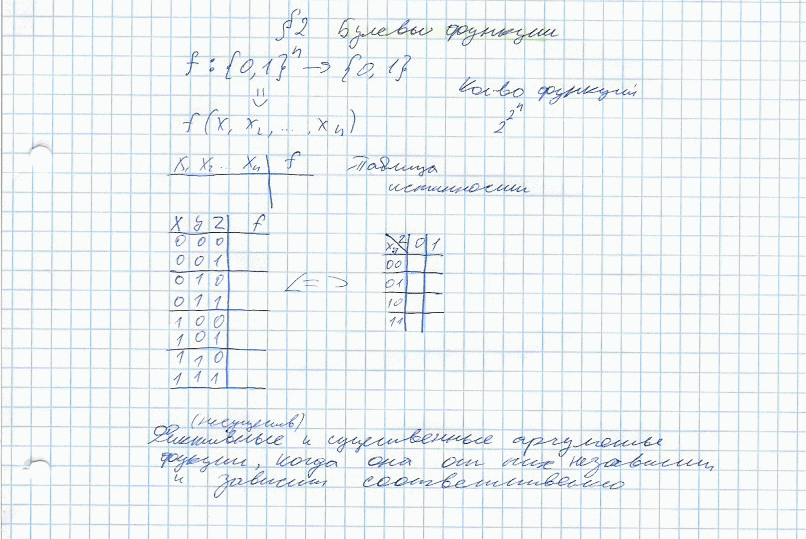 §2 Булевы функции
f : {0,1}ⁿ → {0,1}
Кол-во функций
=
2^2^n
f(x₁ x₂, ... , xₙ)
x₁ x₂ ... xₙ f
Таблица
истинности
x y z f
0 0 0
0 0 1
0 1 0
0 1 1
1 0 0
1 0 1
1 1 0
1 1 1
<=>
xy z 0 1
00
01
10
11
(несуществ)
Фиктивные и существенные аргументы
функции, когда она от них независит
и зависит соответственно